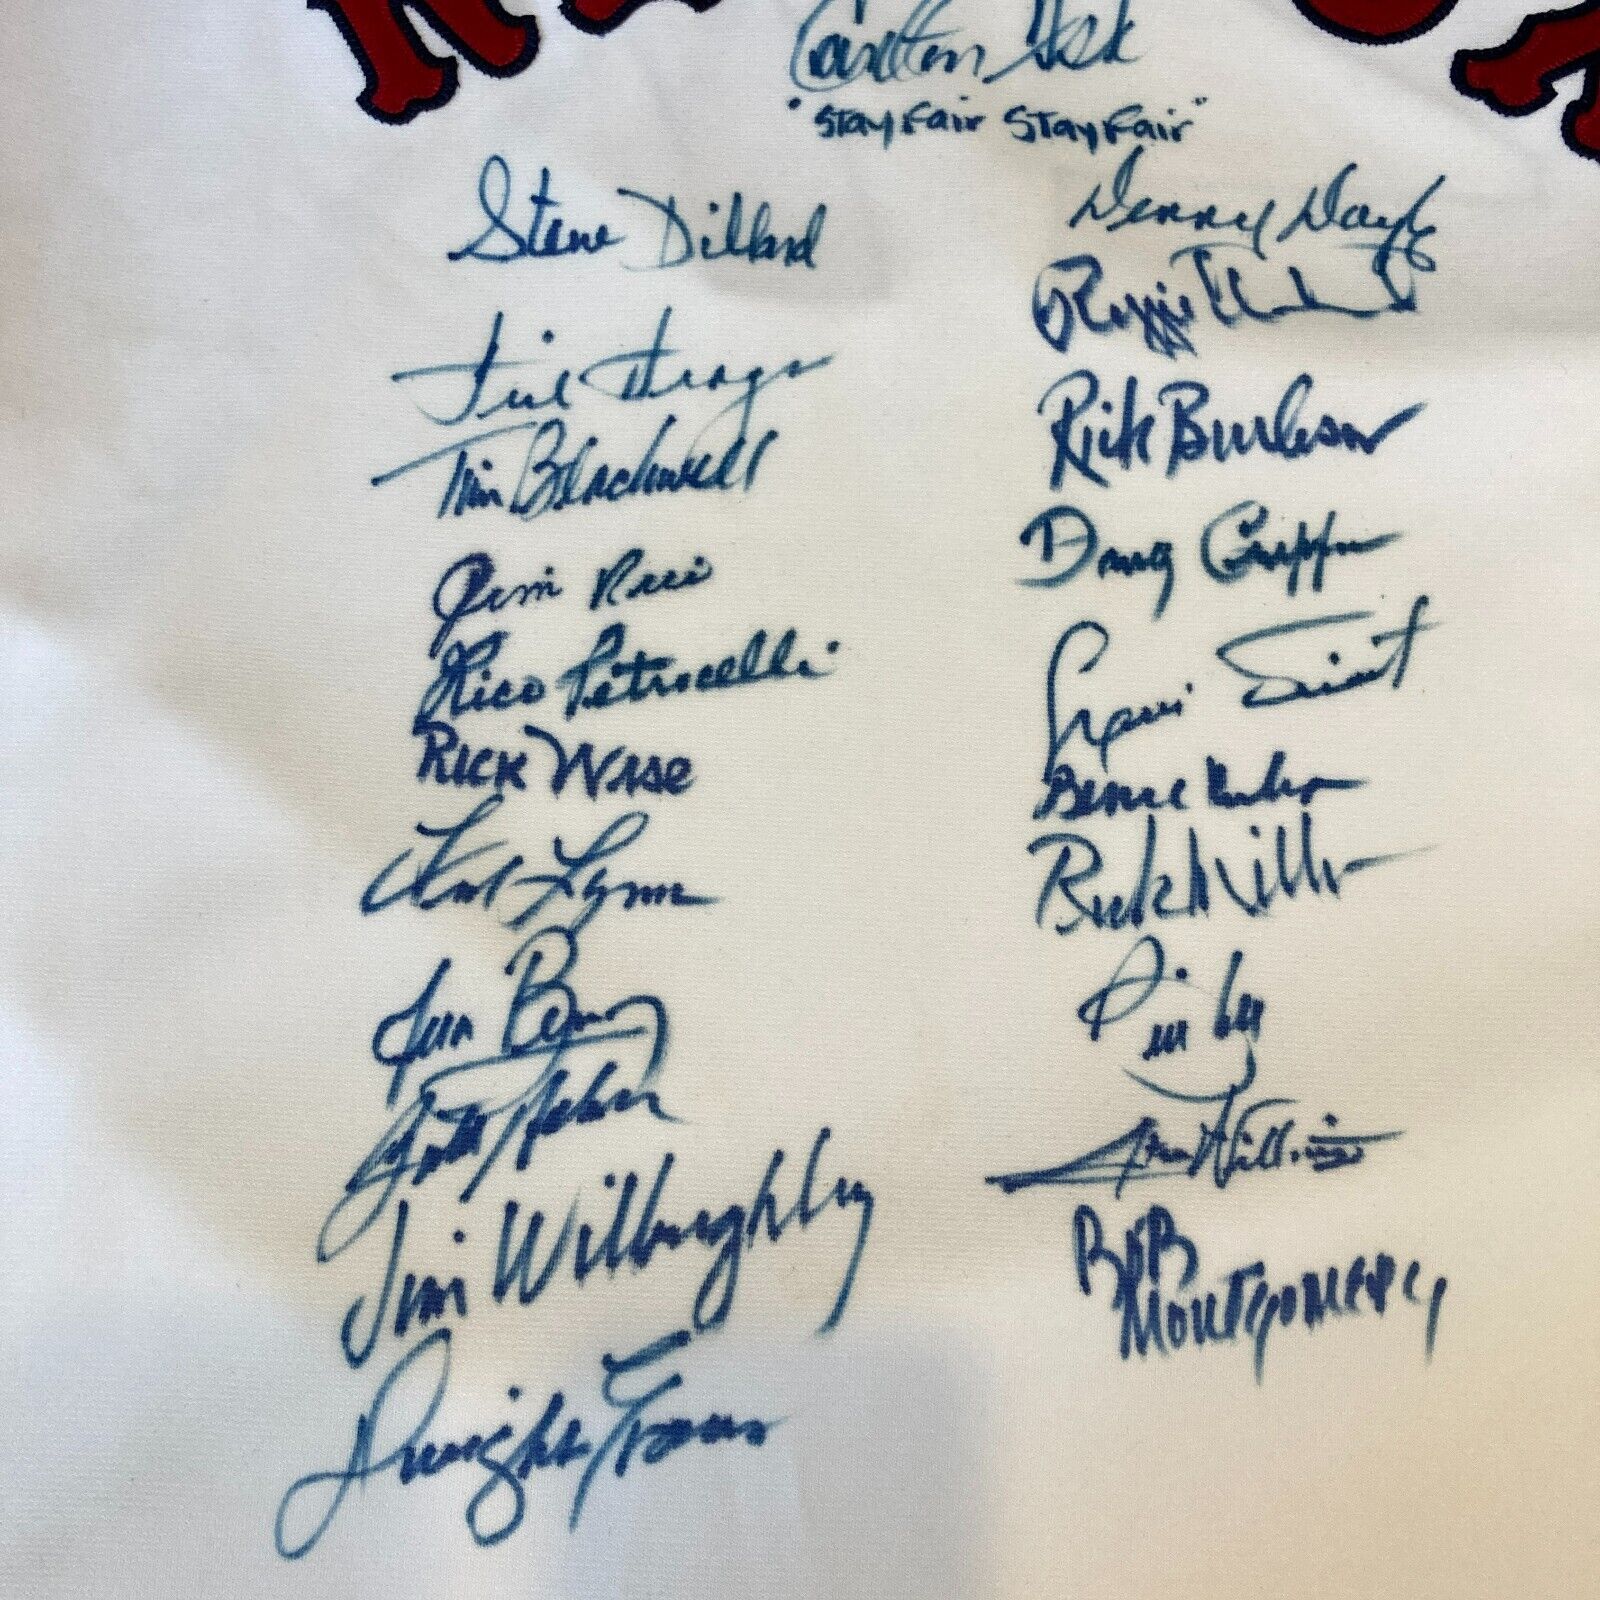 Carlton Fisk
"Stay Fair Stay Fair"
Steve Dillard
Denny Doyle
Reggie
Dick Drago
Tim Blackwell
Rick Burleson
Doug Griffin
Jim Rice
Rico Petrocelli
Luis Tiant
Rick Wise
Bernie Carbo
Fred Lynn
Rick Miller
Juan Beniquez
Bill Lee
Jim Willoughby
Bob
Montgomery
Dwight Evans